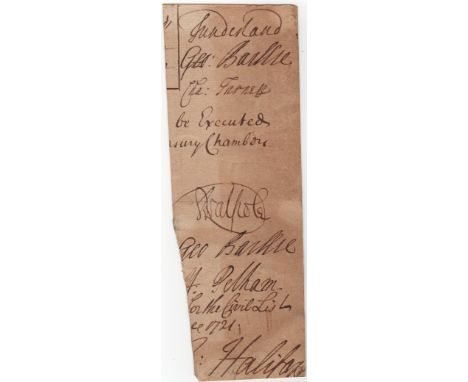 Sunderland
Geo: Baillie
Cha: Turner
be Executed
sury Chamber
RWalpole
Geo Baillie
H. Pelham.
for the Civil List
ne 1721
Halifax